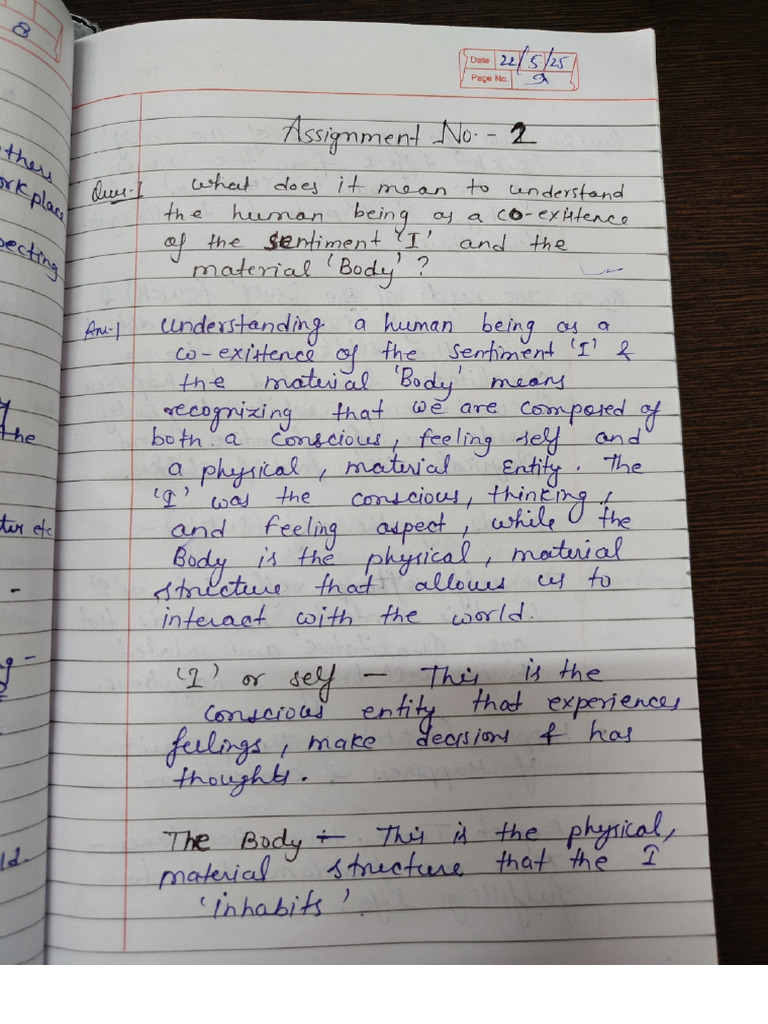 8
thers
ork place
pecting
the
tur etc
ld.
Date 22/5/25
Page No. 9
Assignment No. - 2
Ques-1 What does it mean to understand
the human being as a co-existence
of the sentiment 'I' and the
material 'Body' ?
Ans-1 Understanding a human being as a
co-existence of the sentiment 'I' &
the material 'Body' means
recognizing that we are composed of
both a conscious, feeling self and
a physical, material Entity. The
'I' was the conscious, thinking,
and feeling aspect, while the
Body is the physical, material
structure that allows us to
interact with the world.
'I' or self — This is the
conscious entity that experiences
feelings, make decisions & has
thoughts.
The Body :- This is the physical,
material structure that the I
'inhabits'.